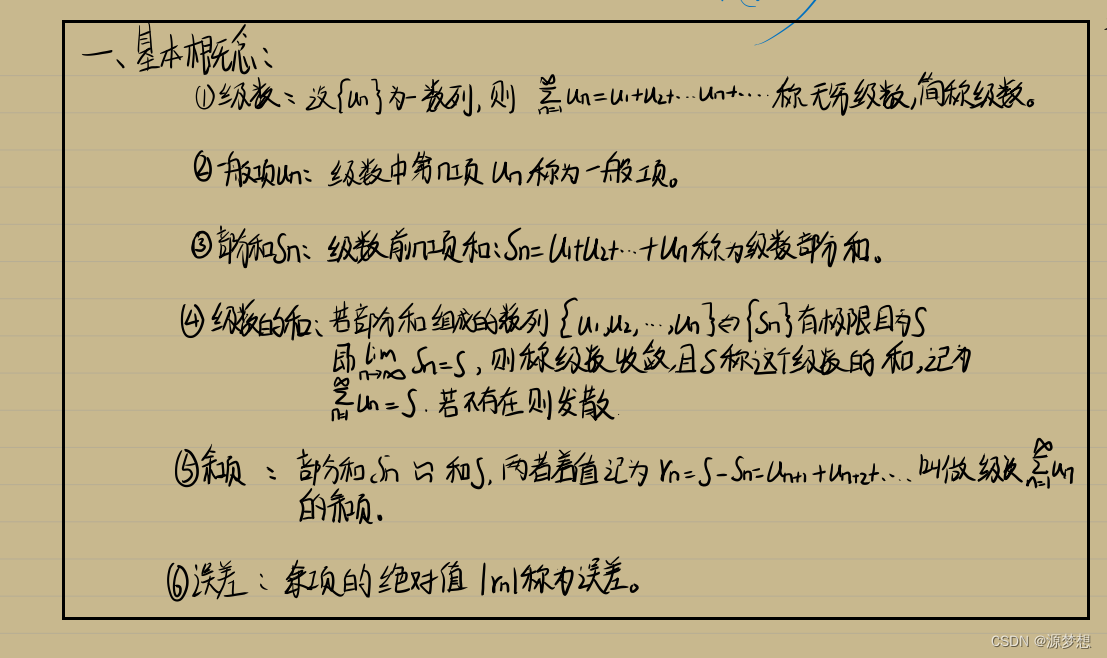 一、基本概念:
①级数:设{un}为一数列,则 ∞∑n=1 un=u1+u2+…un+…称无穷级数,简称级数。
②一般项un: 级数中第n项 un 称为一般项。
③部分和Sn: 级数前n项和:Sn=u1+u2+…+un称为级数部分和。
④级数的和:若部分和组成的数列{u1,u2,…,un}⇔{Sn}有极限且为S
即 lim n→∞ Sn=S,则称级数收敛,且S称这个级数的和,记为
∞∑n=1 un=S.若不存在则发散.
⑤余项 : 部分和Sn与和S,两者差值记为rn=S-Sn=un+1+un+2+…叫做级数∞∑n=1 un
的余项.
⑥误差:余项的绝对值|rn|称为误差。
CSDN @源梦想